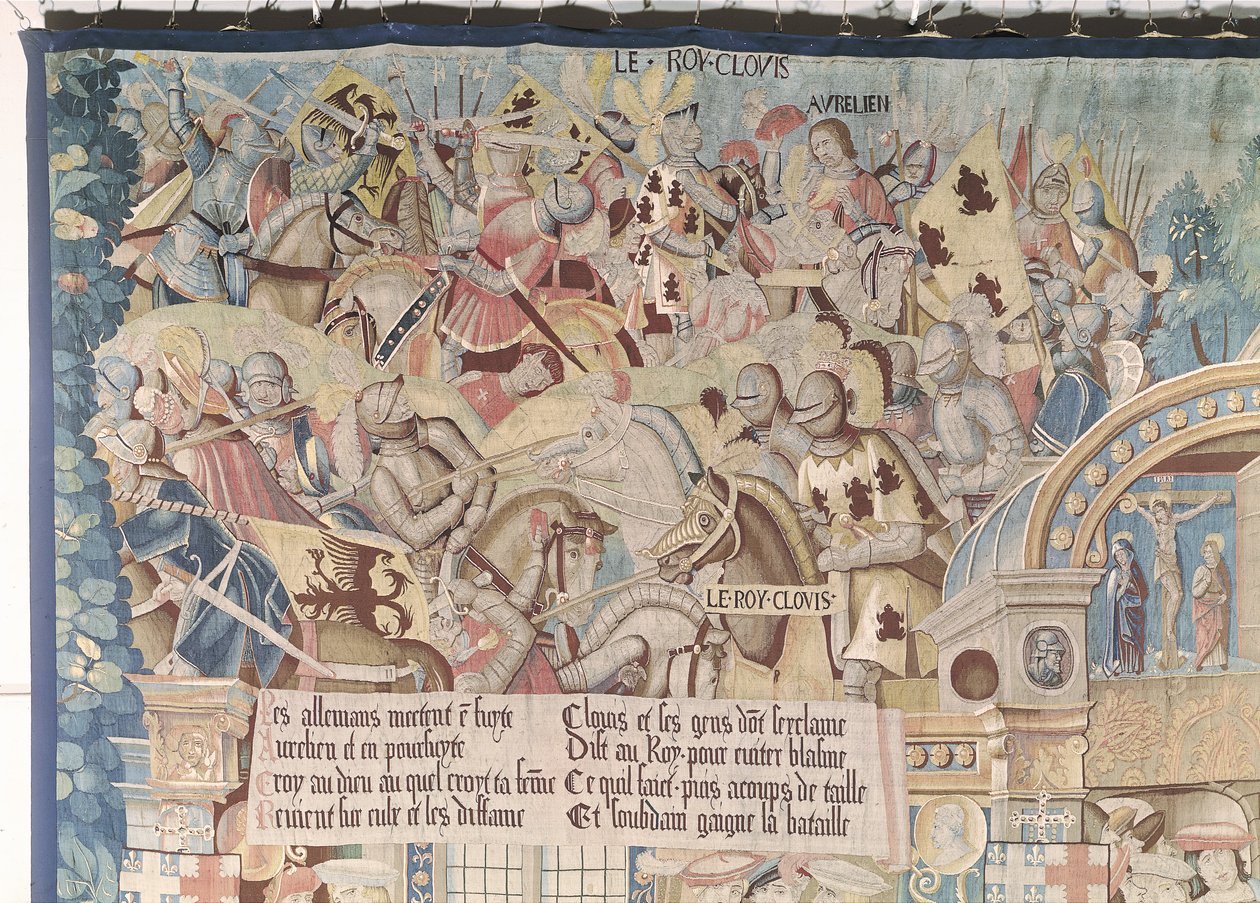 LE · ROY · CLOVIS
AVRELIEN
LE · ROY · CLOVIS ·
Les allemans mectent ē fuyte
Aurelien et en pourſuyte
Croy au dieu au quel croyt ta fēme
Reuient ſur eulx et les diffame
Clouis et ſes gens dōt ſexclame
Diſt au Roy · pour euiter blaſme
Ce quil faict · puis acoups de taille
Et ſoubdain gaigne la bataille